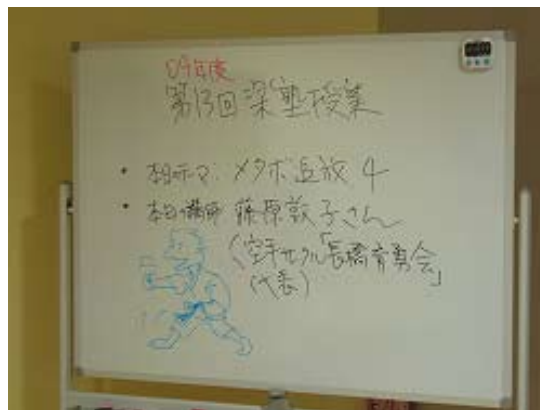 09年度
第13回深塾授業
・本日テーマ:メタボ追放 4
・本日講師 藤原敦子さん
(空手サークル「長橋育勇会」
代表)